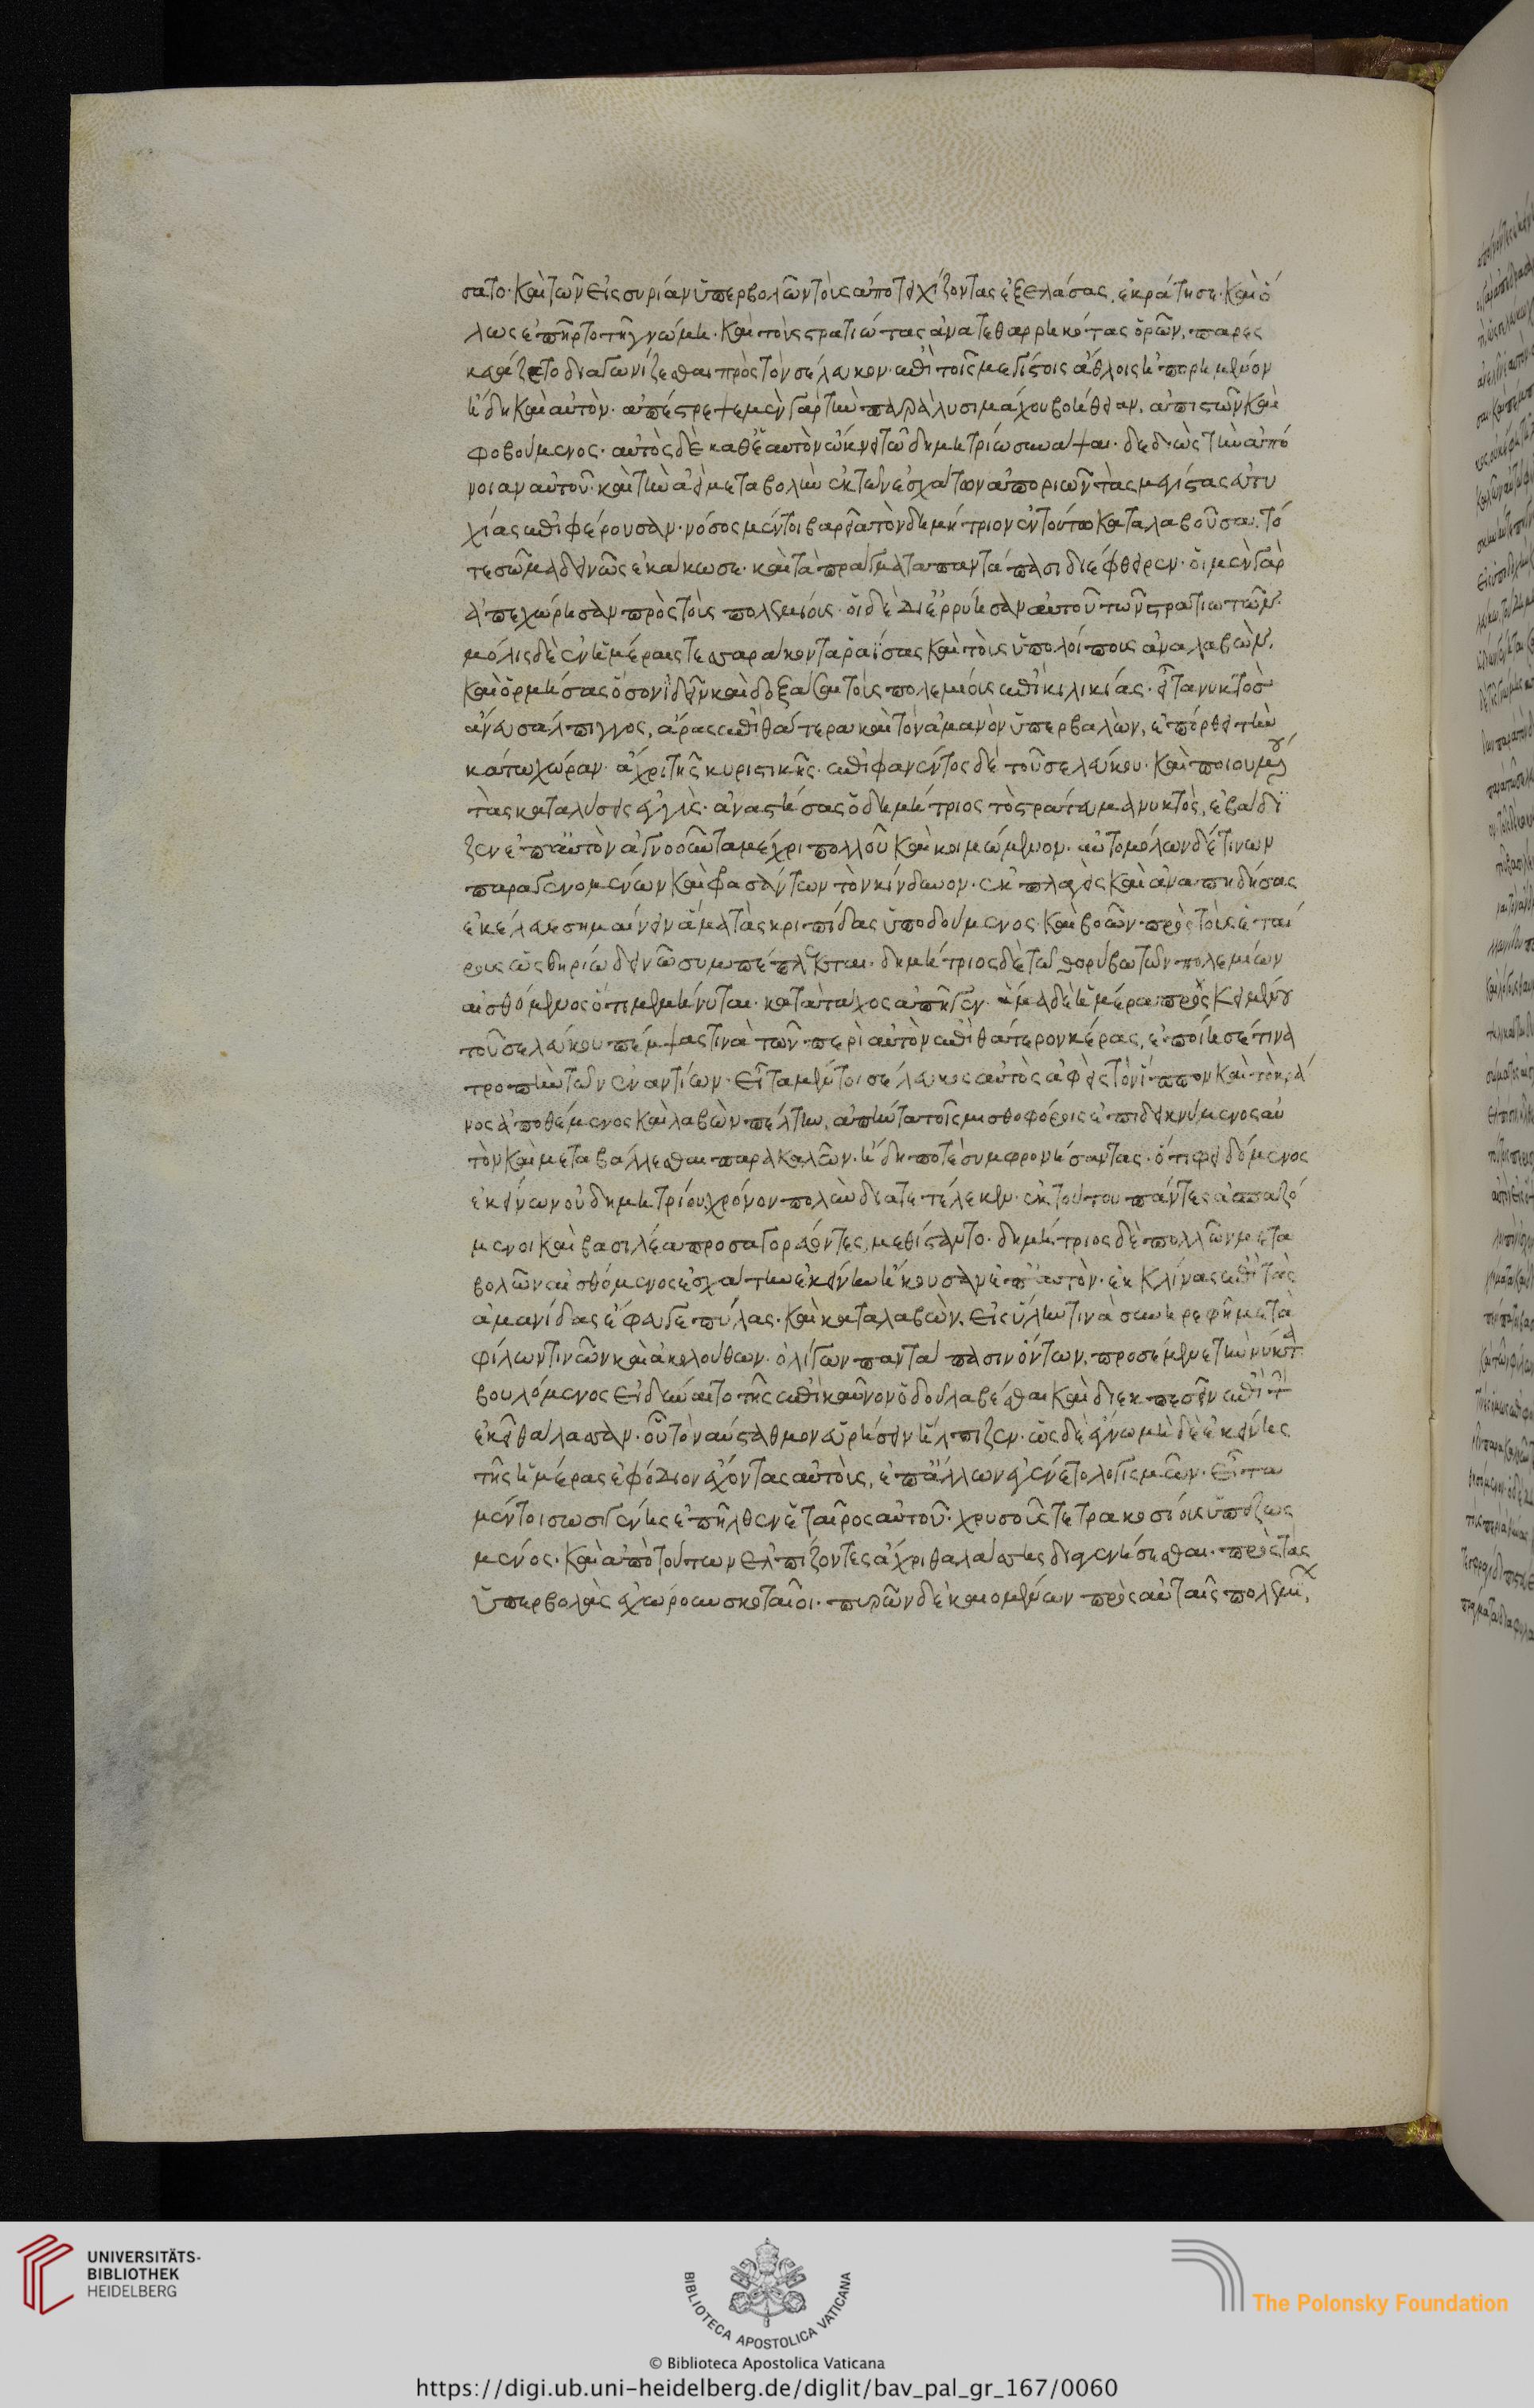 σατο· καὶ τῶν εἰς συρίαν ὑπερβολῶν τοὺς ἀποτειχίζοντας ἐξελάσας, ἐκράτησε· καὶ ὅ
λως ἐπῆρτο τῇ γνώμῃ· καὶ τοὺς στρατιώτας ἀνατεθαρρηκότας ὁρῶν, παρεσ
κευάζετο διαγωνίζεσθαι πρὸς τὸν σέλευκον ἐπὶ τοῖς μεγίστοις ἄθλοις ἠπορημένον
ἤδη καὶ αὐτὸν· ἀπέστρεψε μὲν γὰρ τὴν παρὰ λυσιμάχου βοήθειαν, ἀπιστῶν καὶ
φοβούμενος· αὐτὸς δὲ καθ' ἑαυτὸν ὤκνει τῷ δημητρίῳ συνάψαι· δεδιὼς τὴν ἀπό
νοιαν αὐτοῦ· καὶ τὴν ἀεὶ μεταβολὴν ἐκ τῶν ἐσχάτων ἀποριῶν τὰς μεγίστας εὐτυ
χίας ἐπιφέρουσαν· νόσος μέντοι βαρεῖα τὸν δημήτριον ἐν τούτῳ καταλαβοῦσα, τό
τε σῶμα δεινῶς ἐκάκωσε· καὶ τὰ πράγματα παντάπασι διέφθειρεν· οἱ μὲν γὰρ
ἀπεχώρησαν πρὸς τοὺς πολεμίους· οἱ δὲ διερρύησαν αὐτοῦ τῶν στρατιωτῶν·
μόλις δὲ ἐν ἡμέραις τεσσαράκοντα ῥαΐσας καὶ τοὺς ὑπολοίπους ἀναλαβὼν,
καὶ ὁρμήσας ὅσον ἰδεῖν καὶ δοξάσαι τοὺς πολεμίους ἐπὶ κιλικίας· εἶτα νυκτὸς
ἄνευ σάλπιγγος, ἄρας ἐπὶ θάτερα καὶ τὸν ἀμανὸν ὑπερβαλὼν, ἐπόρθει τὴν
κάτω χώραν· ἄχρι τῆς κυριστικῆς· ἐπιφανέντος δὲ τοῦ σελεύκου· καὶ ποιουμένου
τὰς καταλύσεις ἐγγὺς· ἀναστήσας ὁ δημήτριος τὸ στράτευμα νυκτὸς, ἐβάδι
ζεν ἐπ' αὐτὸν ἀγνοοῦντα μέχρι πολλοῦ καὶ κοιμώμενον· αὐτομόλων δέ τινων
παραγενομένων καὶ φρασάντων τὸν κίνδυνον· ἐκπλαγεὶς καὶ ἀναπηδήσας
ἐκέλευε σημαίνειν ἅμα τὰς κρηπίδας ὑποδούμενος· καὶ βοῶν πρὸς τοὺς ἑταί
ρους ὡς θηρίῳ δεινῷ συμπέπλεκται· δημήτριος δὲ τῷ θορύβῳ τῶν πολεμίων
αἰσθόμενος ὅτι μεμήνυται· κατὰ τάχος ἀπῆγεν· ἅμα δὲ ἡμέρᾳ προσκειμένου
τοῦ σελεύκου πέμψας τινὰ τῶν περὶ αὐτὸν ἐπὶ θάτερον κέρας, ἐποίησέ τινα
τροπὴν τῶν ἐναντίων· εἶτα μέντοι σέλευκος αὐτὸς ἀφεὶς τὸν ἵππον καὶ τὸ κρά
νος ἀποθέμενος καὶ λαβὼν πέλτην, ἀπήντα τοῖς μισθοφόροις ἐπιδεικνύμενος αὑ
τὸν καὶ μεταβάλλεσθαι παρακαλῶν· ἤδη ποτὲ συμφρονήσαντας· ὅτι φειδόμενος
ἐκείνων οὐ δημητρίου χρόνον πολὺν διατετέλεκεν· ἐκ τούτου πάντες ἀσπαζό
μενοι καὶ βασιλέα προσαγορεύοντες, μεθίσταντο· δημήτριος δὲ πολλῶν μετα
βολῶν αἰσθόμενος ἐσχάτην ἐκείνην ἥκουσαν ἐπ' αὐτὸν· ἐκκλίνας ἐπὶ τὰς
ἀμανίδας ἔφευγε πύλας· καὶ καταλαβὼν, εἰς ὕλην τινὰ συνηρεφῆ μετὰ
φίλων τινῶν καὶ ἀκολούθων· ὀλίγων παντάπασιν ὄντων, προσέμενε τὴν νύκτα
βουλόμενος εἰ δύναιτο τῆς ἐπὶ καῦνον ὁδοῦ λαβέσθαι καὶ διεκπεσεῖν ἐπὶ τὴν
ἐκεῖ θάλασσαν· οὗ τὸν ναύσταθμον εὑρήσειν ἤλπιζεν· ὡς δὲ ἔγνω μηδὲ ἐκείνης
τῆς ἡμέρας ἐφόδιον ἔχοντας αὐτοὺς, ἐπ' ἄλλων ἐγένετο λογισμῶν· εἶτα
μέντοι σωσιγένης ἐπῆλθεν ἑταῖρος αὐτοῦ· χρυσοῦς τετρακοσίους ὑπεζωσ
μένος· καὶ ἀπὸ τούτων ἐλπίζοντες ἄχρι θαλάσσης διαγενήσεσθαι· πρὸς τὰς
ὑπερβολὰς ἐχώρουν σκοταῖοι· πυρῶν δὲ καιομένων πρὸς αὐταῖς πολεμικῶν,
UNIVERSITÄTS-
BIBLIOTHEK
HEIDELBERG
BIBLIOTECA APOSTOLICA VATICANA
The Polonsky Foundation
© Biblioteca Apostolica Vaticana
https://digi.ub.uni-heidelberg.de/diglit/bav_pal_gr_167/0060